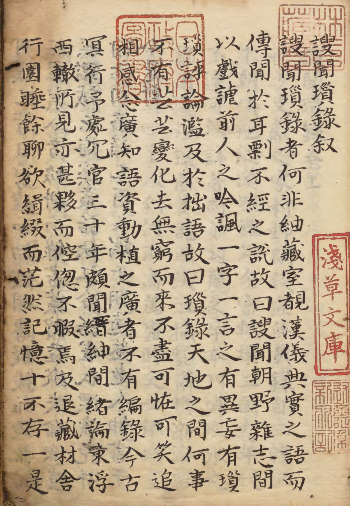 謏聞瑣錄叙
謏聞瑣錄者何非紬藏室覩漢儀典實之語而
傳聞於耳剽不經之識故曰謏聞朝野雜志間
以戲謔前人之吟諷一字一言之有異妄有瑣
瑣評論濫及於拙語故曰瑣錄天地之間何事
不有芸芸變化去無窮而來不盡可恠可笑追
相感念廣知語資動植之廣者不有編錄今古
冥行予處冗官三十年頗聞縉紳間緒論東浮
西轍所見亦甚夥而倥偬不暇焉及退藏材舍
行圃睡餘聊欲緝綴而茫然記憶十不存一是
淺草文庫